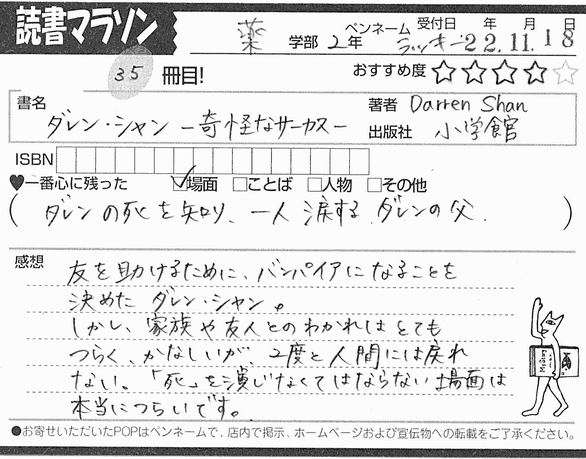 読書マラソン
薬 学部 2年 ペンネーム ラッキー 受付日 22年 11月 18日
35 冊目! おすすめ度 ☆☆☆☆☆
書名 ダレン・シャン ー奇怪なサーカスー 著者 Darren Shan
出版社 小学館
ISBN
♥一番心に残った ☑場面 □ことば □人物 □その他
( ダレンの死を知り、一人涙する、ダレンの父. )
感想
友を助けるために、バンパイアになることを
決めた ダレン・シャン。
しかし、家族や友人とのわかれはとても
つらく、かなしいが、2度と人間には戻れ
ない。「死」を演じなくてはならない場面は
本当につらいです。
●お寄せいただいたPOPはペンネームで、店内で掲示、ホームページおよび宣伝物への転載をご了承ください。